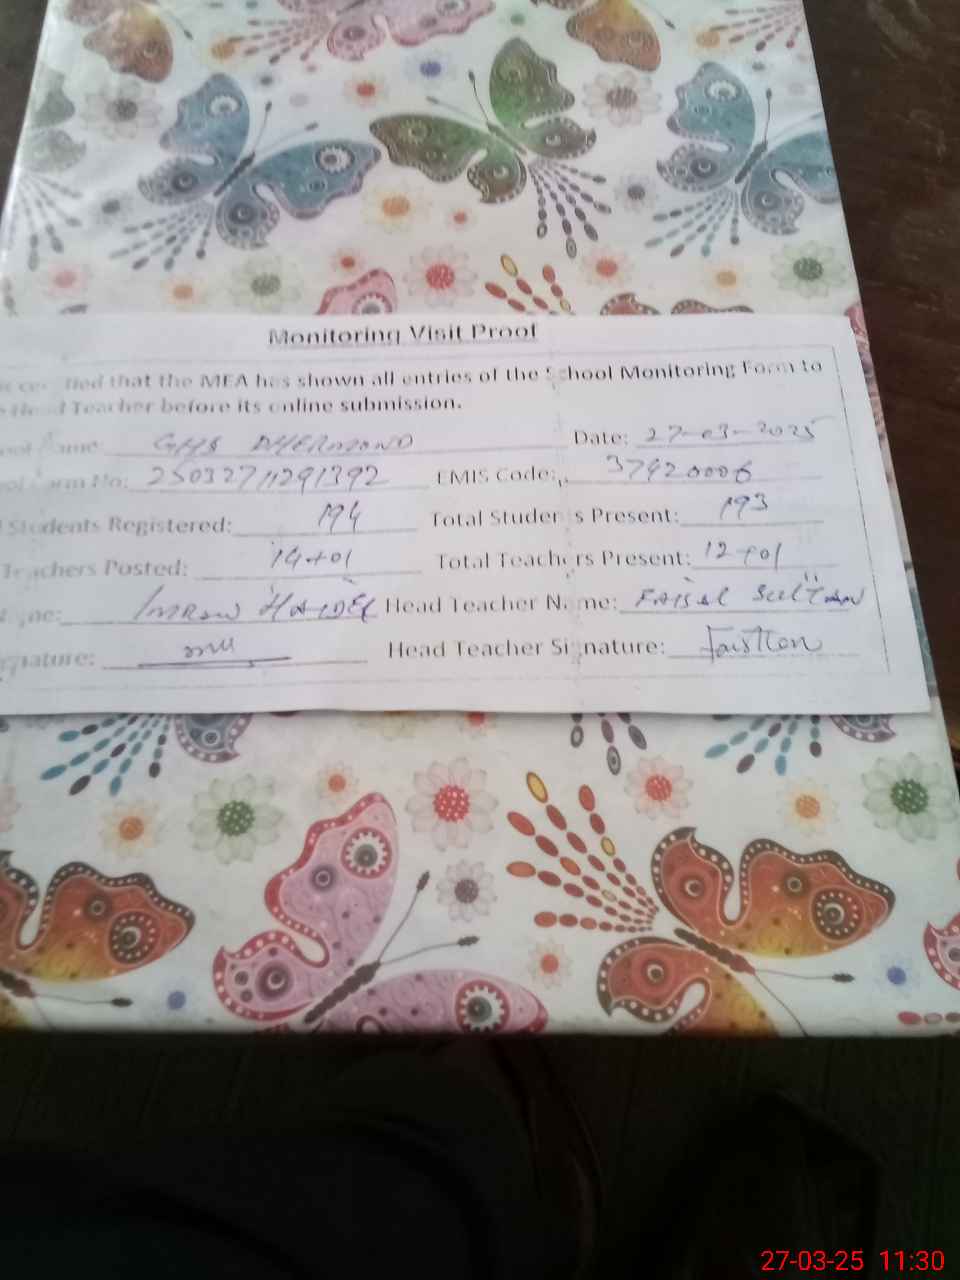 Monitoring Visit Proof
that the MEA has shown all entries of the School Monitoring Form to
Head Teacher before its online submission.
Name: GHS DHERMOND Date: 27-03-2025
Form No: 25032711291392 EMIS Code: 37920006
Students Registered: 194 Total Students Present: 193
Teachers Posted: 14+01 Total Teachers Present: 12+01
Imran Haider Head Teacher Name: Faisal Sultan
Head Teacher Signature:
27-03-25 11:30